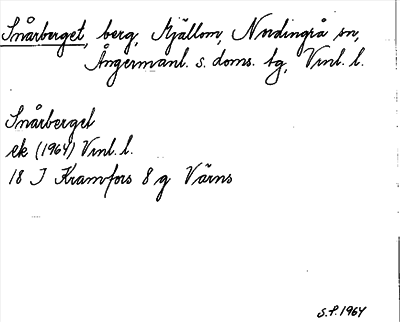 Snårberget, berg, Mjällom, Nordingrå sn,
Ångermanl. s. doms. tg, Vnl. l.
Snårberget
ek (1964) Vnl. l.
18 J Kramfors 8 g Värns
S.P. 1964